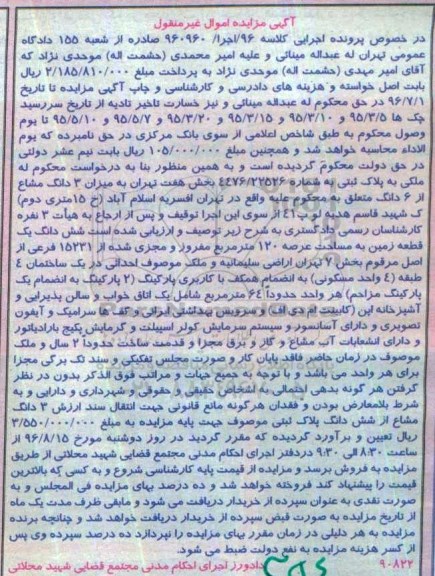 آگهی مزایده اموال غیرمنقول
در خصوص پرونده اجرایی کلاسه ۹۶/اجرا/ ۹۶۰۹۶۰ صادره از شعبه ۱۵۵ دادگاه
عمومی تهران له عبداله مینائی و علیه امیر محمدی (حشمت اله) موحدی نژاد که
آقای امیر مهدی (حشمت اله) موحدی نژاد به پرداخت مبلغ ۲/۱۸۵/۸۱۰/۰۰۰ ریال
بابت اصل خواسته و هزینه های دادرسی و کارشناسی و چاپ آگهی مزایده تا تاریخ
۹۶/۷/۱ در حق محکوم له عبداله مینائی و نیز خسارت تاخیر تادیه از تاریخ سررسید
چک ها ۹۵/۳/۵ و ۹۵/۳/۱۰ و ۹۵/۳/۱۵ و ۹۵/۳/۲۰ و ۹۵/۵/۷ و ۹۵/۵/۱۰ تا یوم
وصول محکوم به طبق شاخص اعلامی از سوی بانک مرکزی در حق نامبرده که یوم
الاداء محاسبه خواهد شد و همچنین مبلغ ۱۰۵/۰۰۰/۰۰۰ ریال بابت نیم عشر دولتی
در حق دولت محکوم گردیده است و به همین منظور بنا به درخواست محکوم له
ملکی به پلاک ثبتی ۴۴۷۶/۲۳۵۲۶ بخش هفت تهران به میزان ۳ دانگ مشاع
از ۶ دانگ متعلق به محکوم علیه واقع در تهران افسریه اسلام آباد (خ ۱۵متری دوم)
ک شهید قاسم هدیه لو پ۴۱ از سوی این اجرا توقیف و پس از ارجاع به هیأت ۳ نفره
کارشناسان رسمی دادگستری به شرح زیر توصیف و ارزیابی شده است شش دانگ یک
قطعه زمین به مساحت عرصه ۱۲۰ مترمربع مفروز و مجزی شده از ۱۵۲۳۱ فرعی از
اصل مرقوم بخش ۷ تهران اراضی سلیمانیه و ملک موصوف احداثی در یک ساختمان ۴
طبقه (۴ واحد مسکونی) به انضمام همکف با کاربری پارکینگ (۲ پارکینگ به انضمام یک
پارکینگ مزاحم) هر واحد حدوداً ۶۴ مترمربع شامل یک اتاق خواب و سالن پذیرایی و
آشپزخانه اپن (کابینت ام دی اف) و سرویس بهداشتی ایرانی و کف ها سرامیک و آیفون
تصویری و دارای آسانسور و سیستم سرمایش کولر اسپیلت و گرمایش پکیج بارادیاتور
و دارای انشعابات آب مشاع و گاز و برق مجزا و قدمت ساخت حدوداً ۲ سال و ملک
موصوف در زمان حاضر فاقد پایان کار و صورت مجلس تفکیکی و سند تک برگی مجزا
برای هر واحد می باشد و با توجه به جمیع جهات و مراتب فوق الذکر بدون در نظر
گرفتن هر گونه بدهی احتمالی به اشخاص حقیقی و حقوقی و شهرداری و دارایی و به
شرط بلامعارض بودن و فقدان هرگونه مانع قانونی جهت انتقال سند ارزش ۳ دانگ
مشاع از شش دانگ پلاک ثبتی موصوف جهت پایه مزایده به مبلغ ۳/۵۵۰/۰۰۰/۰۰۰
ریال تعیین و برآورد گردیده که مقرر گردید در روز دوشنبه مورخ ۹۶/۸/۱۵ از
ساعت ۸:۳۰ الی ۹:۳۰ دردفتر اجرای احکام مدنی مجتمع قضایی شهید محلاتی از طریق
مزایده به فروش برسد و مزایده از قیمت پایه کارشناسی شروع و به کسی که بالاترین
قیمت را پیشنهاد کند فروخته خواهد شد و ده درصد بهای مزایده فی المجلس و به
صورت نقدی به عنوان سپرده از خریدار دریافت می شود و مابقی ظرف مدت یک ماه
از تاریخ مزایده به صورت قبض سپرده از خریدار دریافت خواهد شد و چنانچه برنده
مزایده به هر دلیلی در زمان مقرر بهای مزایده را نپردازد ده درصد سپرده وی پس
از کسر هزینه مزایده به نفع دولت ضبط می شود.
۹۰۸۲۲ دادورز اجرای احکام مدنی مجتمع قضایی شهید محلاتی